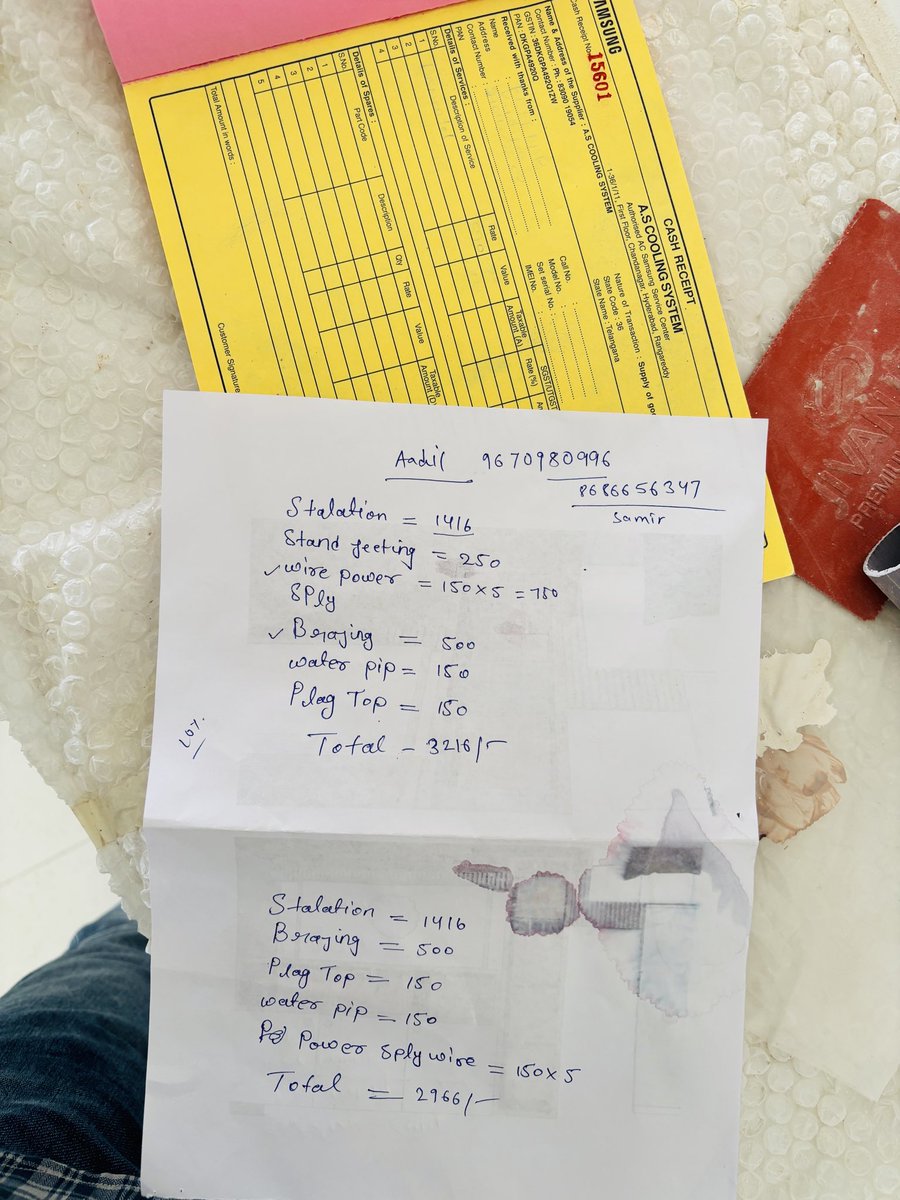 SAMSUNG
Cash Receipt No. 15601
CASH RECEIPT
A.S COOLING SYSTEM
Authorised AC Samsung Service Center
1-36/1/11, First Floor, Chandanagar, Hyderabad, Rangareddy
Name & Address of the Supplier : A.S COOLING SYSTEM
Contact Number : Ph : 83090 19054
GSTIN : 36DKGPA4920Q1ZW
PAN : DKGPA4920Q
Nature of Transaction : Supply of
State Code : 36
State Name : Telangana
Received with thanks from :
Name
Address
Contact Number
PAN
Call No.
Model No.
Set serial No. :
IMEI No.
Details of Services :
S.No Description of Service Rate Value Taxable Amount (A) SGST/UTGST Rate (%)
1
2
3
4
Details of Spares :
S.No Part Code Description Qty Rate Value Taxable Amount (D)
1
2
3
4
5
Total Amount in words :
Customer Signature
JIVAN
PREMIUM
Aadil 9670980996
8686656347
Samir
Stalation = 1416
Stand feeting = 250
✓ wire power = 150×5 = 750
sply
✓ Brajing = 500
water pip = 150
Plag Top = 150
Total - 3216/-
Stalation = 1416
Brajing = 500
Plag Top = 150
water pip = 150
Power sply wire = 150×5
Total = 2966/-